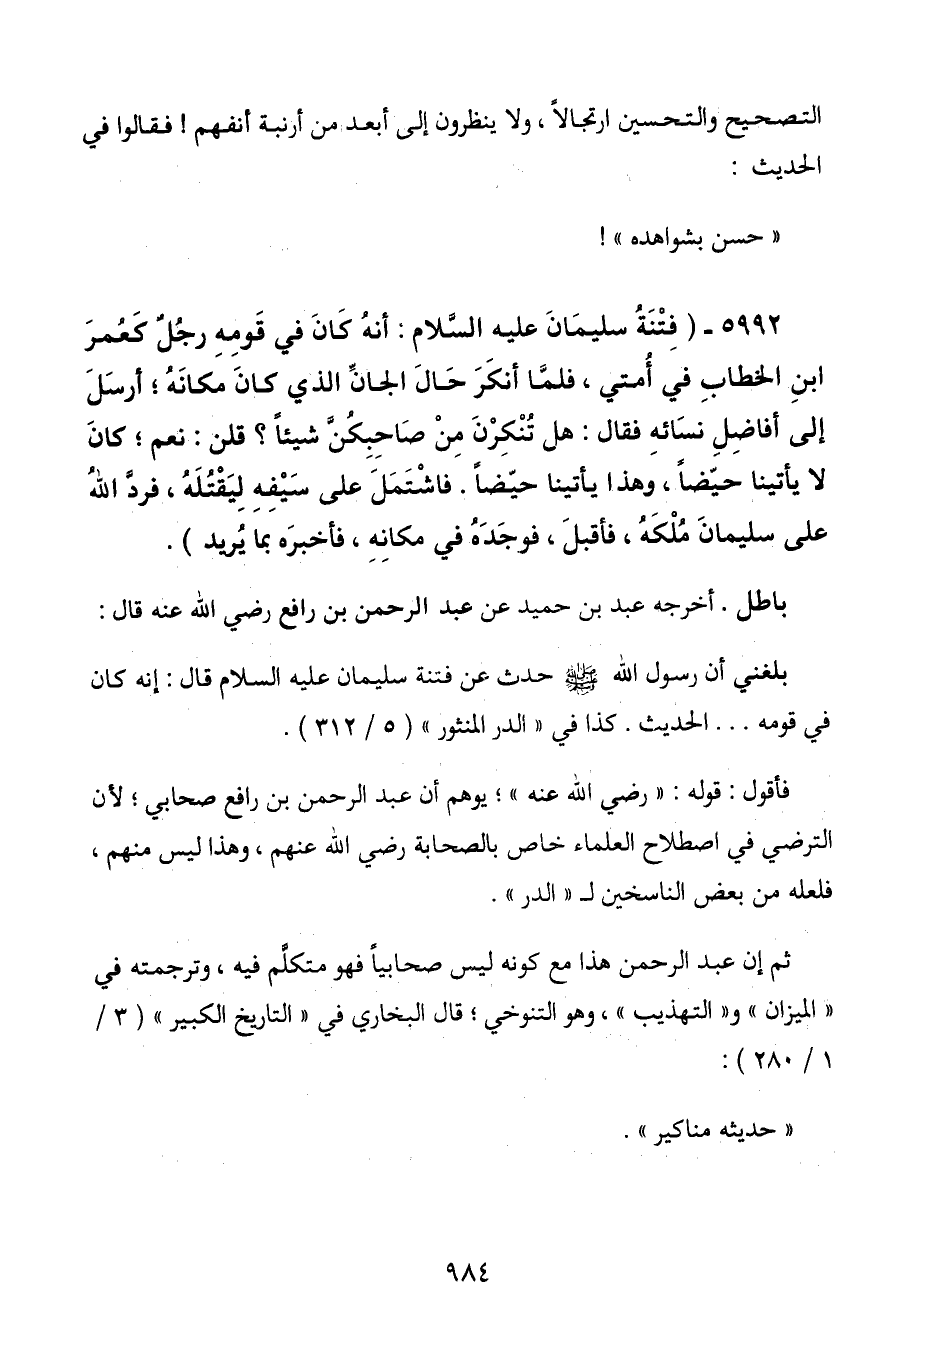 التصحيح والتحسين ارتجالاً ، ولا ينظرون إلى أبعد من أرنبة أنفهم ! فقالوا في
الحديث :
« حسن بشواهده » !
٥٩٩٢ ـ ( فِتْنَةُ سليمَانَ عليه السَّلام : أنهُ كَانَ في قَومِهِ رجُلٌ كَعُمرَ
ابنِ الخطابِ في أُمتي ، فلمَّا أنكَرَ حَالَ الجانِّ الذي كانَ مكانَهُ ؛ أرسَلَ
إلى أفاضِلِ نسَائه فقال : هل تُنْكِرْنَ مِنْ صَاحبِكُنَّ شيئاً ؟ قلن : نعم ؛ كانَ
لا يأتينا حيّضاً ، وهذا يأتينا حيّضاً . فاشْتَمَلَ على سَيْفِهِ لِيَقْتُلَهُ ، فردَّ اللهُ
على سليمانَ مُلْكَهُ ، فأقبلَ ، فوجَدَهُ في مكانِهِ ، فأخبرَه بما يُريد ) .
باطل . أخرجه عبد بن حميد عن عبد الرحمن بن رافع رضي الله عنه قال :
بلغني أن رسول الله ﷺ حدث عن فتنة سليمان عليه السلام قال : إنه كان
في قومه ... الحديث . كذا في « الدر المنثور » ( ٥ / ٣١٢ ) .
فأقول : قوله : « رضي الله عنه » ؛ يوهم أن عبد الرحمن بن رافع صحابي ؛ لأن
الترضي في اصطلاح العلماء خاص بالصحابة رضي الله عنهم ، وهذا ليس منهم ،
فلعله من بعض الناسخين لـ « الدر » .
ثم إن عبد الرحمن هذا مع كونه ليس صحابياً فهو متكلَّم فيه ، وترجمته في
« الميزان » و« التهذيب » ، وهو التنوخي ؛ قال البخاري في « التاريخ الكبير » ( ٣ /
١ / ٢٨٠ ) :
« حديثه مناكير » .
٩٨٤